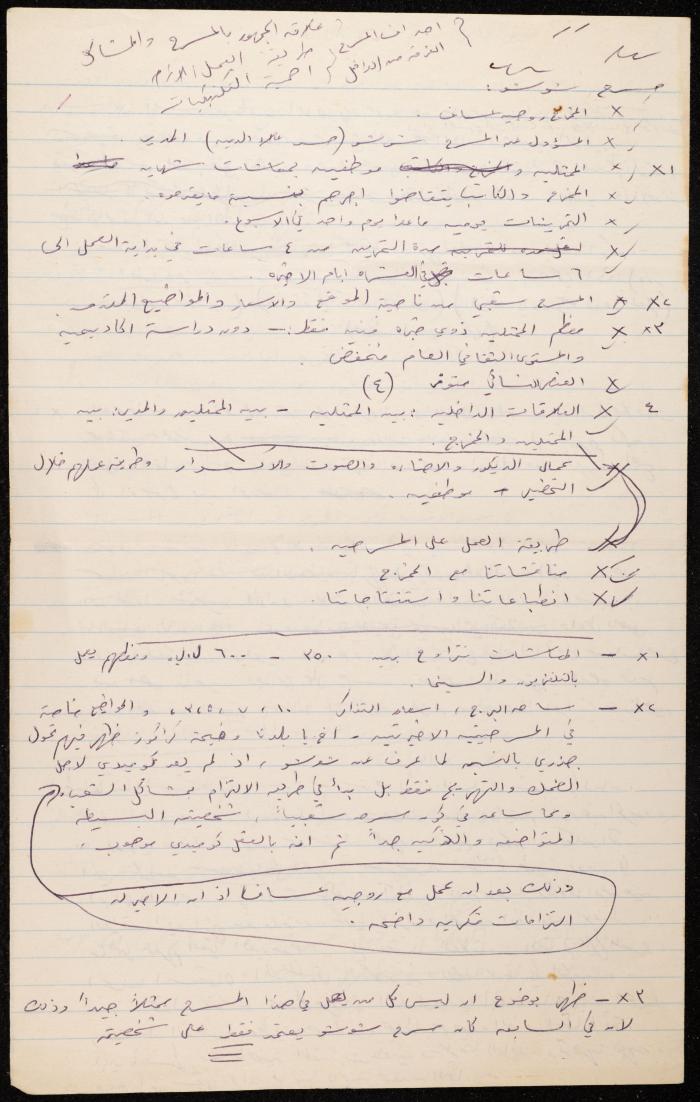 علاقة الجمهور بالمسرح والمشاكل
طريقة العمل
مسرح شوشو:
x المخرج روجيه عساف.
x المسؤول عن المسرح شوشو (حسن علاء الدين) المدير.
x١ x الممثلين موظفين بمعاشات شهرية
x المخرج والكاتب يتقاضوا اجرهم بنسبة
x التمرينات يومية ما عدا يوم واحد في الاسبوع.
x مدة التمرين من ٤ ساعات في بداية العمل الى
٦ ساعات العشرة ايام الاخيرة.
x٢ x المسرح شعبي من ناحية الموقع والاسعار والمواضيع
x٣ x معظم الممثلين ذوي خبرة فنية فقط :- دون دراسة اكاديمية
والمستوى الثقافي العام منخفض.
x العنصر النسائي متوفر (٤)
٤ x العلاقات الداخلية: بين الممثلين - بين الممثلين والمدير: بين
الممثلين والمخرج.
x عمال الديكور والاضاءة والصوت والاكسسوار وطريقة عملهم خلال
التحضير - موظفين.
x طريقة العمل على المسرحية.
x مناقشاتنا مع المخرج
x انطباعاتنا واستنتاجاتنا.
x١ - المعاشات تتراوح بين ٣٥٠ - ٦٠٠ ل.ل. ومعظمهم يعمل
بالتلفزيون والسينما.
x٢ - ساحة البرج، اسعار التذاكر ١٠، ٧، ٥، ٣، والمواضيع خاصة
في المسرحيتين الاخيرتين - اخ يا بلدنا وخيمة كراكوز ظهر فيهم تحول
جذري بالنسبة لما عرف عن شوشو، اذ لم يعد كوميدي لاجل
الضحك والتهريج فقط بل بدأ في طريق الالتزام بمشاكل الشعب.
ومما ساعد في كون مسرحه شعبياً، شخصيته البسيطة
المتواضعة والذكية جداً ثم انه بالفعل كوميدي موهوب.
وذلك بعد ان عمل مع روجيه عساف اذ ان الاخير له
التزامات فكرية واضحة.
x٣ - ظهر بوضوح ان ليس كل من يعمل في هذا المسرح ممثلاً جيداً وذلك
لان في السابق كان مسرح شوشو يعتمد فقط على شخصيته